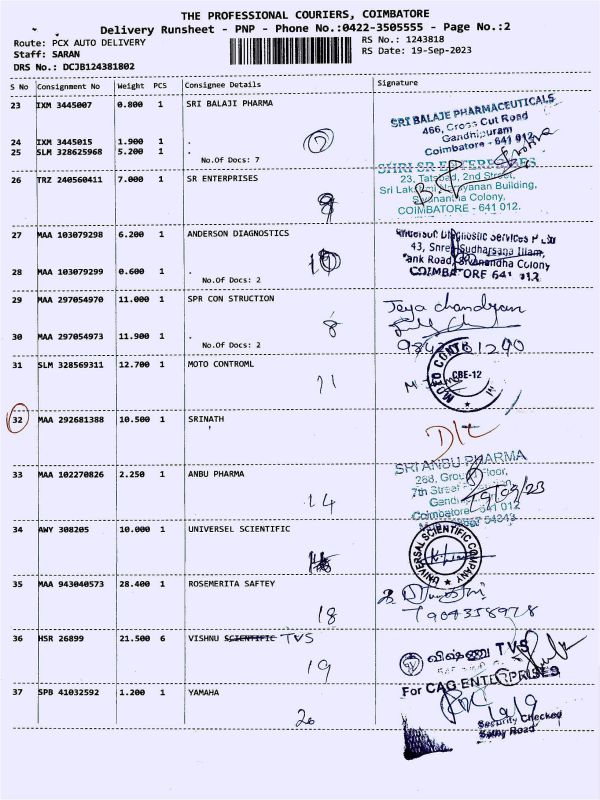 THE PROFESSIONAL COURIERS, COIMBATORE
Delivery Runsheet - PNP - Phone No.:0422-3505555 - Page No.:2
Route: PCX AUTO DELIVERY
RS No.: 1243818
Staff: SARAN
RS Date: 19-Sep-2023
DRS No.: DCJB124381802
S No Consignment No Weight PCS Consignee Details Signature
23 IXM 3445007 0.800 1 SRI BALAJI PHARMA
SRI BALAJE PHARMACEUTICALS
466, Cross Cut Road
Gandhipuram
Coimbatore - 641 012
24 IXM 3445015 1.900 1 .
25 SLM 328625968 5.200 1 .
No.Of Docs: 7
7
26 TRZ 240560411 7.000 1 SR ENTERPRISES
SHRI SR ENTERPRISES
23, Tatabad, 2nd Street,
Sri Lakshmi Narayanan Building,
Sivanantha Colony,
COIMBATORE - 641 012.
27 MAA 103079298 6.200 1 ANDERSON DIAGNOSTICS
Anderson Diagnostic Services P Ltd
43, Shree Sudharsana Illam,
Tank Road, Sivanandha Colony
COIMBATORE 641 012
28 MAA 103079299 0.600 1 .
No.Of Docs: 2
29 MAA 297054970 11.000 1 SPR CON STRUCTION
Jeya chandran
8
30 MAA 297054973 11.900 1 .
No.Of Docs: 2
31 SLM 328569311 12.700 1 MOTO CONTROML
11
MOTO CONTROL
CBE-12
32 MAA 292681388 10.500 1 SRINATH
D/L
33 MAA 102270826 2.250 1 ANBU PHARMA
14
SRI ANBU PHARMA
268, Ground Floor,
7th Street
Coimbatore - 641 012
19/09/23
34 AWY 308205 10.000 1 UNIVERSEL SCIENTIFIC
UNIVERSAL SCIENTIFIC COMPANY
35 MAA 943040573 28.400 1 ROSEMERITA SAFTEY
18
7904358928
36 HSR 26899 21.500 6 VISHNU SCIENTIFIC TVS
19
விஷ்ணு TVS
For CAG ENTERPRISES
37 SPB 41032592 1.200 1 YAMAHA
20
19/9
Security Checked
Sathy Road